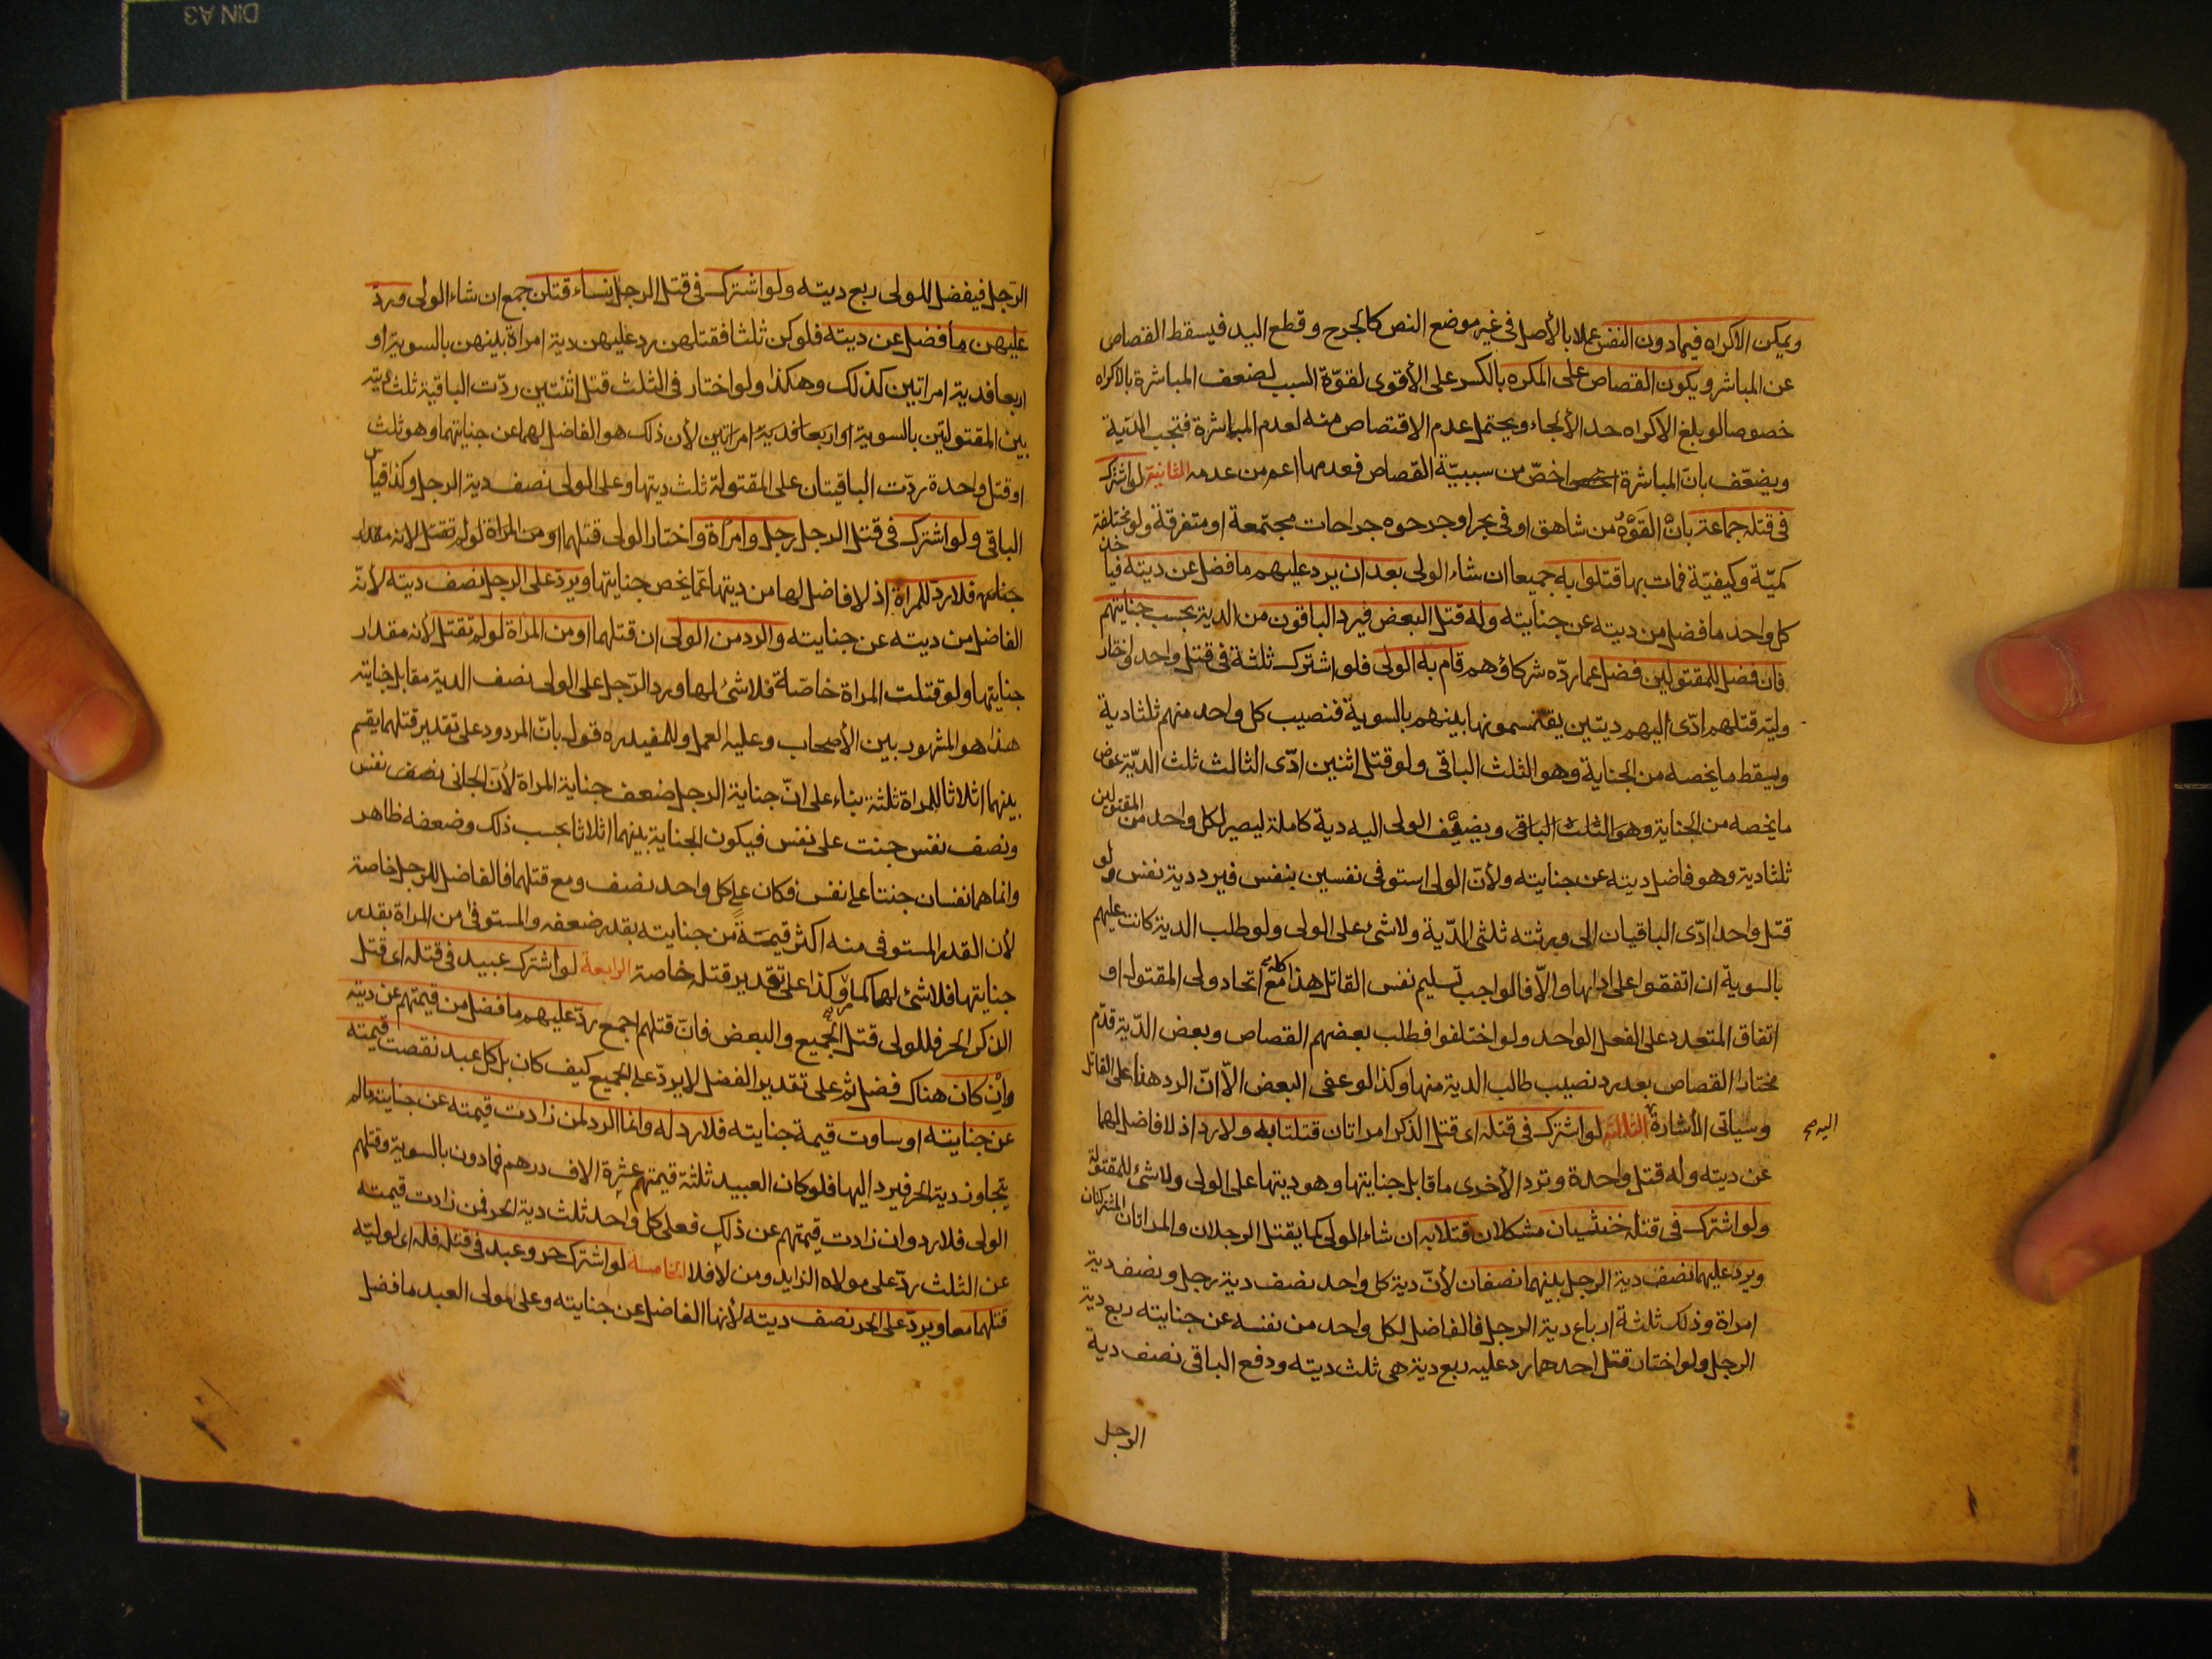 ويمكن الاكراه فيما دون النفس عملا بالأصل فى غير موضع النص كالجرح وقطع اليد فيسقط القصاص
عن المباشر ويكون القصاص على المكره بالكسر على الأقوى لقوّة السبب لضعف المباشرة بالاكراه
خصوصا لو بلغ الاكراه حد الألجاء ويحتمل عدم الاقتصاص منه لعدم المباشرة فتجب الديّة
ويضعّف بانّ المباشرة اخصّ من سببيّة القصاص فعدمها اعم من عدمه الثانية لو اشترك
فى قتله جماعة بانْ القَوْهُ من شاهق او فى بحر او جرحوه جراحات مجتمعة او متفرقة ولو مختلفة
كميّة وكيفيّة فمات بها قتلوا به جميعا ان شاء الولى بعد ان يرد عليهم ما فضل عن ديته فيأخذ
كل واحد ما فضل من ديته عن جنايته وله قتل البعض فيرد الباقون من الدية بحسب جنايتهم
فان فضل للمقتولين فضل عما ردّه شركاؤهم قام به الولى فلو اشترك ثلثة فى قتل واحد واختار
وليّه قتلهم ادّى اليهم ديتين يقتسمونها بينهم بالسوية فنصيب كل واحد منهم ثلثا دية
ويسقط ما يخصه من الجناية وهو الثلث الباقى ولو قتل اثنين ادّى الثالث ثلث الديّة عوض
ما يخصه من الجناية وهو الثلث الباقى ويضيف الولى اليه دية كاملة ليصير لكل واحد من المقتولين
ثلثا دية وهو فاضل ديته عن جنايته ولأنّ الولى استوفى نفسين بنفس فيرد دية نفس ولو
قتل واحدا ادّى الباقيان الى ورثته ثلثى الدّية ولا شئ على الولى ولو طلب الدية كانت عليهم
بالسوية ان اتفقوا على ادائها والاّ فالواجب تسليم نفس القاتل هذا كله مع اتحاد ولى المقتول او
اتفاق المتعدد على الفعل الواحد ولو اختلفوا فطلب بعضهم القصاص وبعض الدّية قدّم
مختار القصاص بعد رد نصيب طالب الدية منها وكذا لو عفى البعض الاّ انّ الرد هنا على القاتل
وسياتى الأشارة الثالثة لو اشترك فى قتله اى قتل الذكر امراتان قتلتا به ولا رد اذ لا فاضل لهما
اليه صح
عن ديته وله قتل واحدة وترد الأخرى ما قابل جنايتها وهو ديتها على الولى ولا شئ للمقتولة
ولو اشترك فى قتله خنثيان مشكلان قتلا به ان شاء الولى كما يقتل الرجلان والمراتان المشتركتان
ويرد عليهما نصف دية الرجل بينهما نصفان لأنّ دية كل واحد نصف دية رجل ونصف دية
امراة وذلك ثلثة ارباع دية الرجل فالفاضل لكل واحد من نفسه عن جنايته ربع دية
الرجل ولو اختار قتل احدهما رد عليه ربع دية هى ثلث ديته ودفع الباقى نصف دية
الرجل
الرّجل فيفضل للولى ربع ديته ولو اشترك فى قتل الرجل نساء قتلن جمع ان شاء الولى ورد
عليهن ما فضل عن ديته فلو كن ثلثا فقتلهن رد عليهن دية امراة بينهن بالسوية او
اربعا فدية امراتين كذلك وهكذا ولو اختار فى الثلث قتل اثنتين ردّت الباقية ثلث ديته
بين المقتولتين بالسوية او اربعا فدية امراتين لأن ذلك هو الفاضل لهما عن جنايتهما وهو ثلث
او قتل واحدة ردّت الباقيتان على المقتولة ثلث ديتها وعلى الولى نصف دية الرجل وكذا قياس
الباقى ولو اشترك فى قتل الرجل رجل وامراة واختار الولى قتلهما او من المراة لو لم تقتل لانه مقدار
جنايتها فلا ردّ للمراة اذ لا فاضل لها من ديتها عمّا يخص جنايتها ويردّ على الرجل نصف ديته لأنّه
الفاضل من ديته عن جنايته والرد من الولى ان قتلهما او من المراة لو لم تقتل لأنه مقدار
جنايتها ولو قتلت المراة خاصّة فلا شئ لها ورد الرّجل على الولى نصف الدية مقابل جنايته
هذا هو المشهور بين الأصحاب وعليه العمل وللمفيد ره قول بانّ المردود على تقدير قتلهما يقسم
بينهما اثلاثا للمراة ثلثة بناء على انّ جناية الرجل ضعف جناية المراة لأنّ الجانى نصف نفس
ونصف نفس جنت على نفس فيكون الجناية بينهما اثلاثا بحسب ذلك وضعفه ظاهر
وانما هما نفسان جنتا على نفس فكان على كل واحد نصف ومع قتلهما فالفاضل للرجل خاصة
لأن القدر المستوفى منه اكثر قيمةً من جنايته بقدر ضعفه والمستوفى من المراة بقدر
جنايتها فلا شئ لها كما مرّ وكذا على تقدير قتله خاصة الرابعة لو اشترك عبيد فى قتله اى قتل
الذكر الحر فللولى قتل الجميع والبعض فان قتلهم اجمع ردّ عليهم ما فضل من قيمتهم عن ديته
وانْ كان هناك فضل ثم على تقدير الفضل لا يردّ على الجميع كيف كان بل كل عبد نقصت قيمته
عن جنايته او ساوت قيمة جنايته فلا رد له وانما الرد لمن زادت قيمته عن جنايته ما لم
يتجاوز دية الحر فيرد اليها فلو كان العبيد ثلثة قيمتهم عشرة الاف درهم فما دون بالسوية وقتلهم
الولى فلا رد وان زادت قيمتهم عن ذلك فعلى كل واحد ثلث دية الحر فمن زادت قيمته
عن الثلث ردّ على مولاه الزايد ومن لا فلا الخامسة لو اشترك حر وعبد فى قتله فله اى لوليّه
قتلهما معا ويردّ على الحر نصف ديته لأنها الفاضل عن جنايته وعلى المولى العبد ما فضل